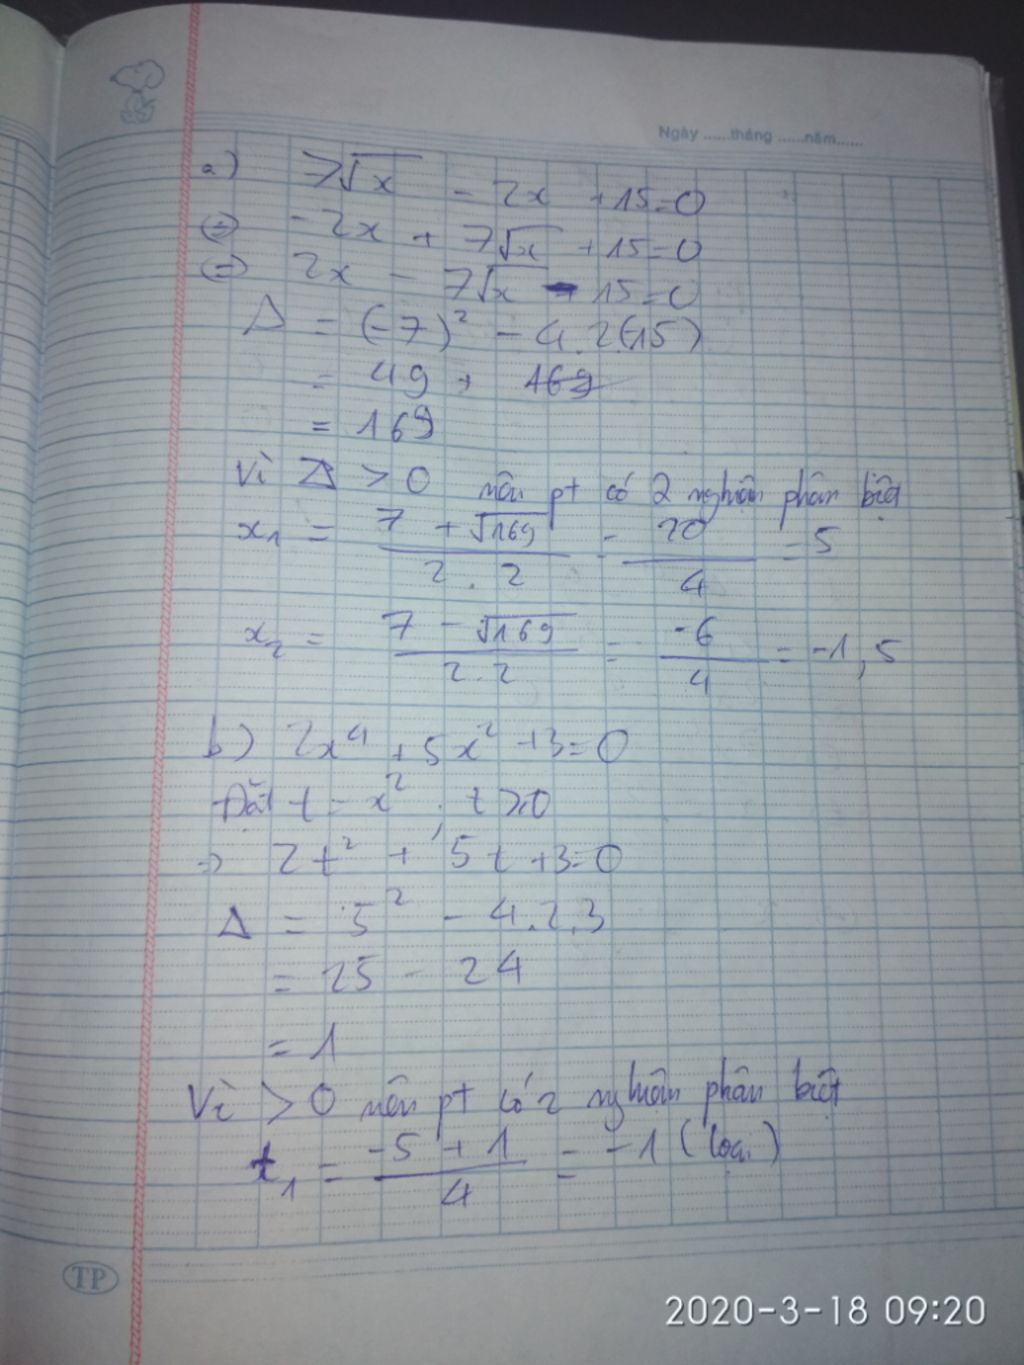 Ngày ......tháng ......năm......
a) 7√x - 2x + 15 = 0
⇔ -2x + 7√x + 15 = 0
⇔ 2x - 7√x - 15 = 0
Δ = (-7)² - 4.2(-15)
= 49 + 169
= 169
Vì Δ > 0 nên pt có 2 nghiệm phân biệt
x₁ = (7 + √169)/(2.2) = 20/4 = 5
x₂ = (7 - √169)/(2.2) = -6/4 = -1,5
b) 2x⁴ + 5x² + 3 = 0
Đặt t = x², t ≥ 0
⇒ 2t² + 5t + 3 = 0
Δ = 5² - 4.2.3
= 25 - 24
= 1
Vì > 0 nên pt có 2 nghiệm phân biệt
t₁ = (-5 + 1)/4 = -1 (loại)
TP
2020-3-18 09:20